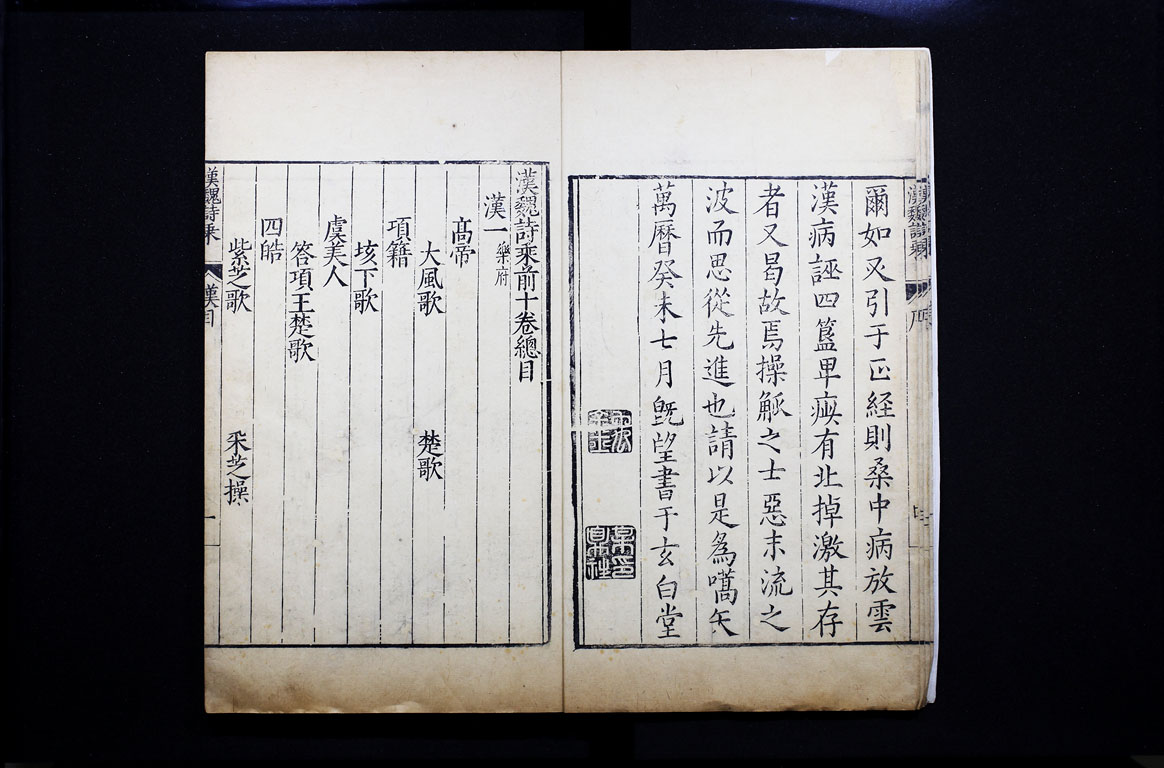 爾如又引于正経則桑中病放雲
漢病誣四簋卑瘐有北掉激其存
者又曷故焉操觚之士惡末流之
波而思從先進也請以是為嚆矢
萬曆癸未七月旣望書于玄白堂
漢魏詩乘前十卷總目
漢一 樂府
髙帝
大風歌 楚歌
項籍
垓下歌
虞美人
答項王楚歌
四皓
紫芝歌 采芝操
漢魏詩乘 漢目 一